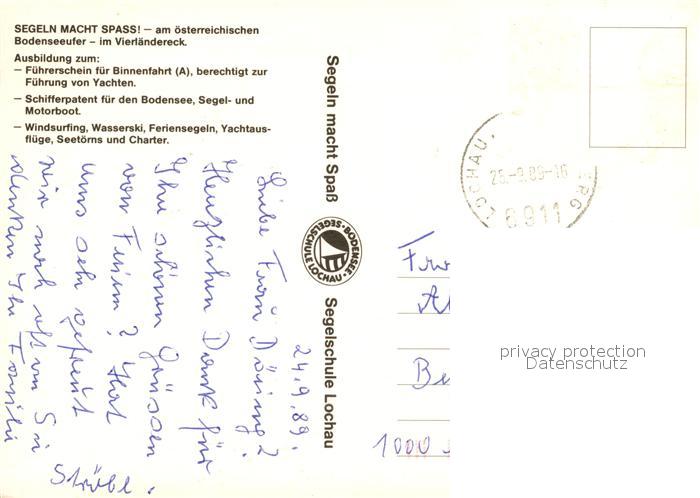 SEGELN MACHT SPASS! – am österreichischen
Bodenseeufer – im Vierländereck.
Ausbildung zum:
– Führerschein für Binnenfahrt (A), berechtigt zur
Führung von Yachten.
– Schifferpatent für den Bodensee, Segel- und
Motorboot.
– Windsurfing, Wasserski, Feriensegeln, Yachtaus-
flüge, Seetörns und Charter.
Segeln macht Spaß
BODENSEE-SEGELSCHULE LOCHAU
Segelschule Lochau
24.9.89.
Liebe Frau
Herzlichen Dank für
Ihre schönen Grüssen
von Ferien? Hat
uns sehr gefreut
wir noch oft an
denken Ihr Familie
Ströbl.
LOCHAU,
25.-9.89-16
6911
Be
1000
privacy protection
Datenschutz